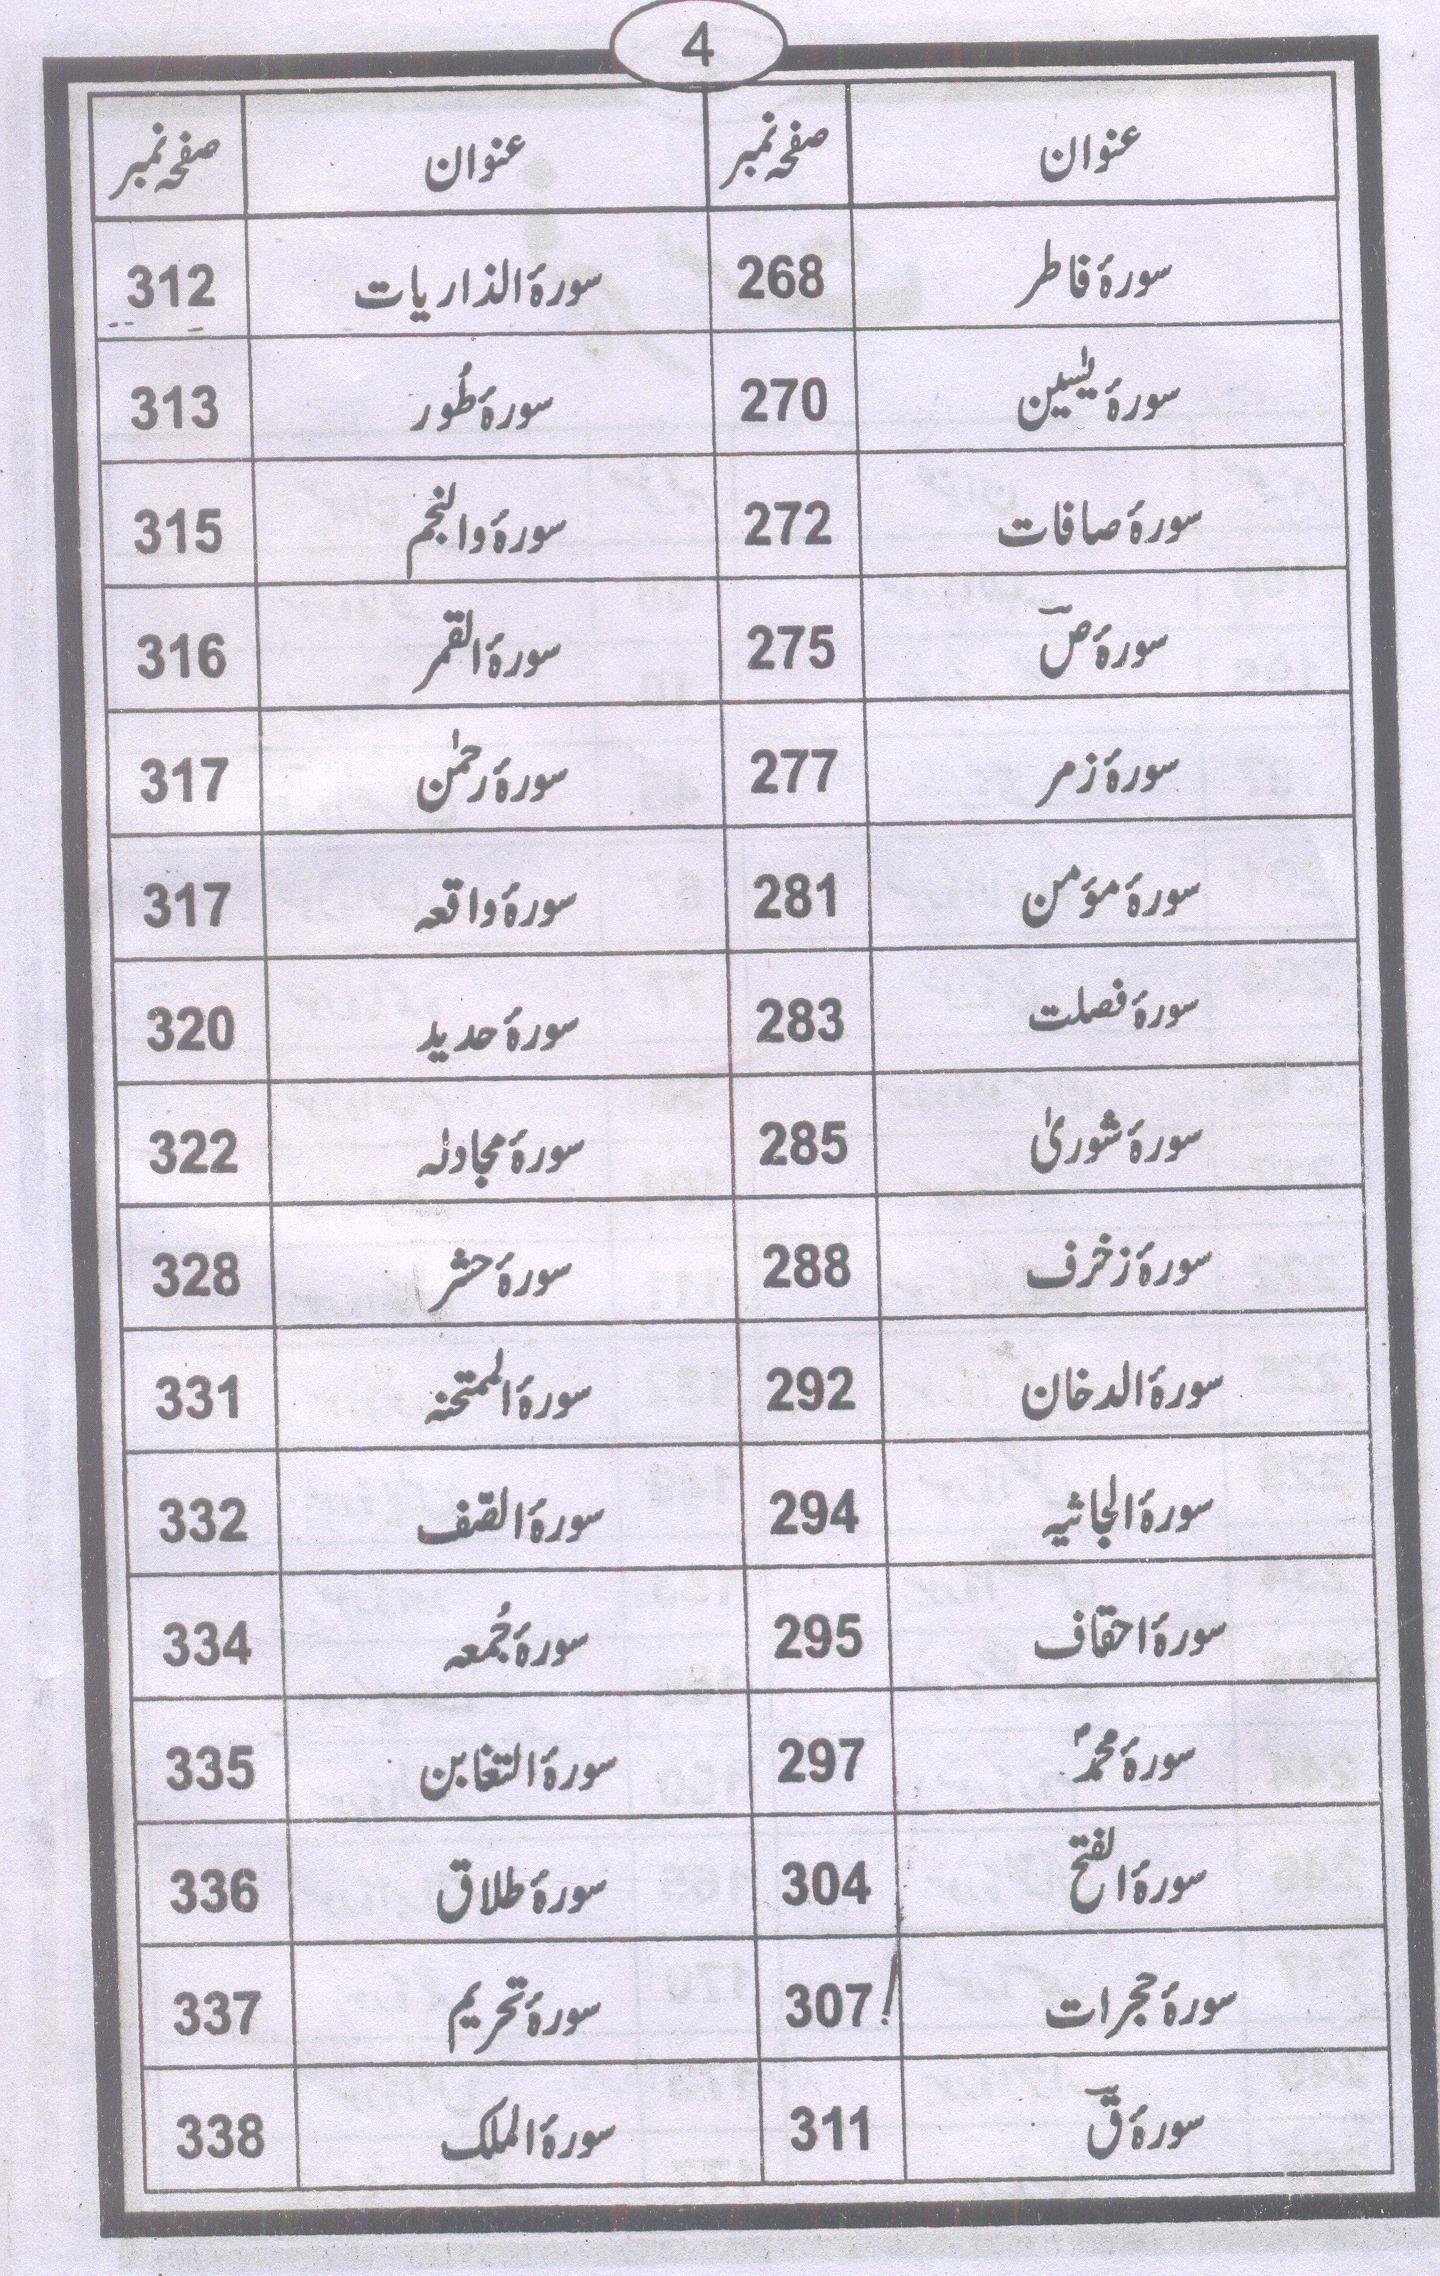 4
عنوان صفحہ نمبر عنوان صفحہ نمبر
سورۂ فاطر 268 سورۂ الذاریات 312
سورۂ یٰسین 270 سورۂ طُور 313
سورۂ صافات 272 سورۂ والنجم 315
سورۂ صٓ 275 سورۂ القمر 316
سورۂ زمر 277 سورۂ رحمٰن 317
سورۂ مؤمن 281 سورۂ واقعہ 317
سورۂ فصلت 283 سورۂ حدید 320
سورۂ شوریٰ 285 سورۂ مجادلہ 322
سورۂ زخرف 288 سورۂ حشر 328
سورۂ الدخان 292 سورۂ الممتحنہ 331
سورۂ الجاثیہ 294 سورۂ الصّف 332
سورۂ احقاف 295 سورۂ جُمعہ 334
سورۂ محمدؐ 297 سورۂ التغابن 335
سورۂ الفتح 304 سورۂ طلاق 336
سورۂ حجرات 307 سورۂ تحریم 337
سورۂ قٓ 311 سورۂ الملک 338